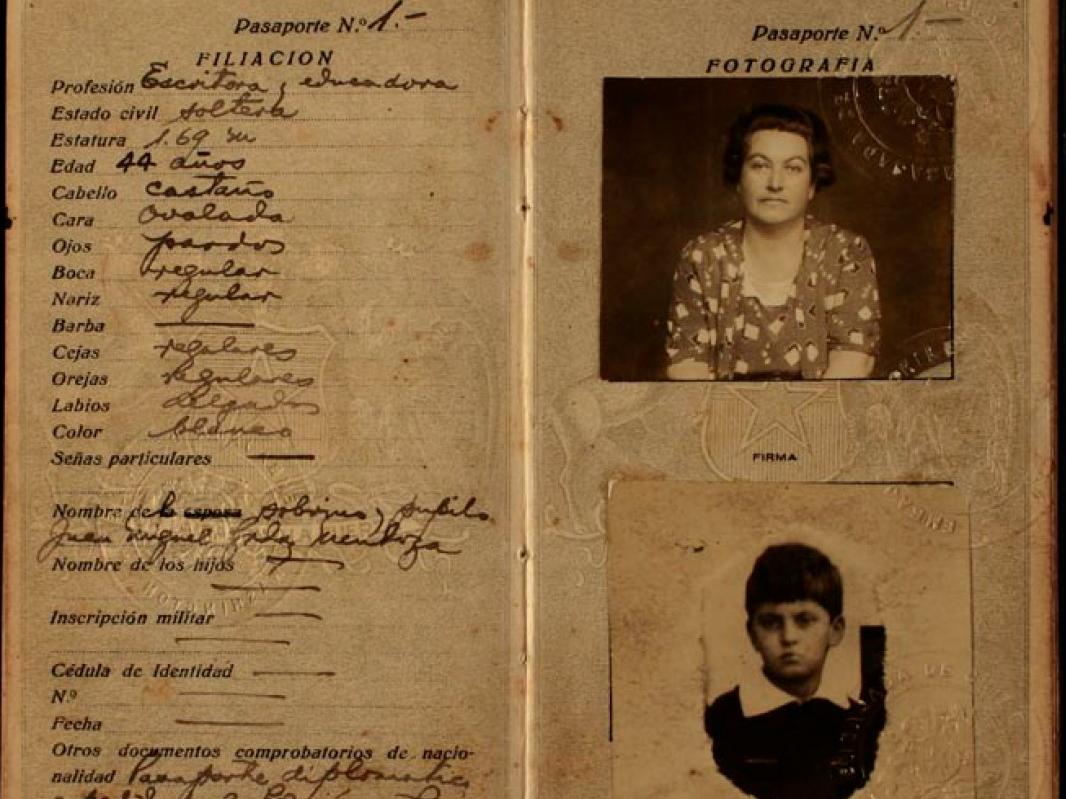 Pasaporte N.º 1.-
FILIACION
Profesión Escritora y educadora
Estado civil soltera
Estatura 1.69 m
Edad 44 años
Cabello castaño
Cara Ovalada
Ojos pardos
Boca regular
Nariz regular
Barba
Cejas regulares
Orejas regulares
Labios delgados
Color blanco
Señas particulares
Nombre de la esposa sobrino y pupilo
Juan Miguel Godoy Mendoza
Nombre de los hijos
Inscripción militar
Cédula de Identidad
N.º
Fecha
Otros documentos comprobatorios de nacio-
nalidad Pasaporte diplomático
Pasaporte N.º 1.-
FOTOGRAFIA
FIRMA